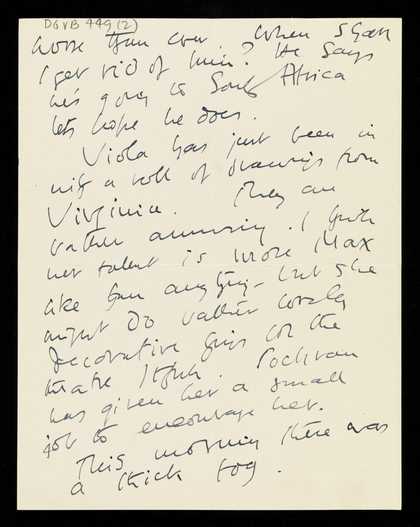 DGVB 449 (2)
worse than ever. When shall
I get rid of him? He says
he's going to South Africa
lets hope he does.
Viola has just been in
with a roll of drawings from
Virginia. They are
rather amusing. I think
her talent is more Max
like than anything - but she
might do rather lovely
decorative things for the
theatre I think. Cochran
has given her a small
job to encourage her.
This morning there was
a thick fog.